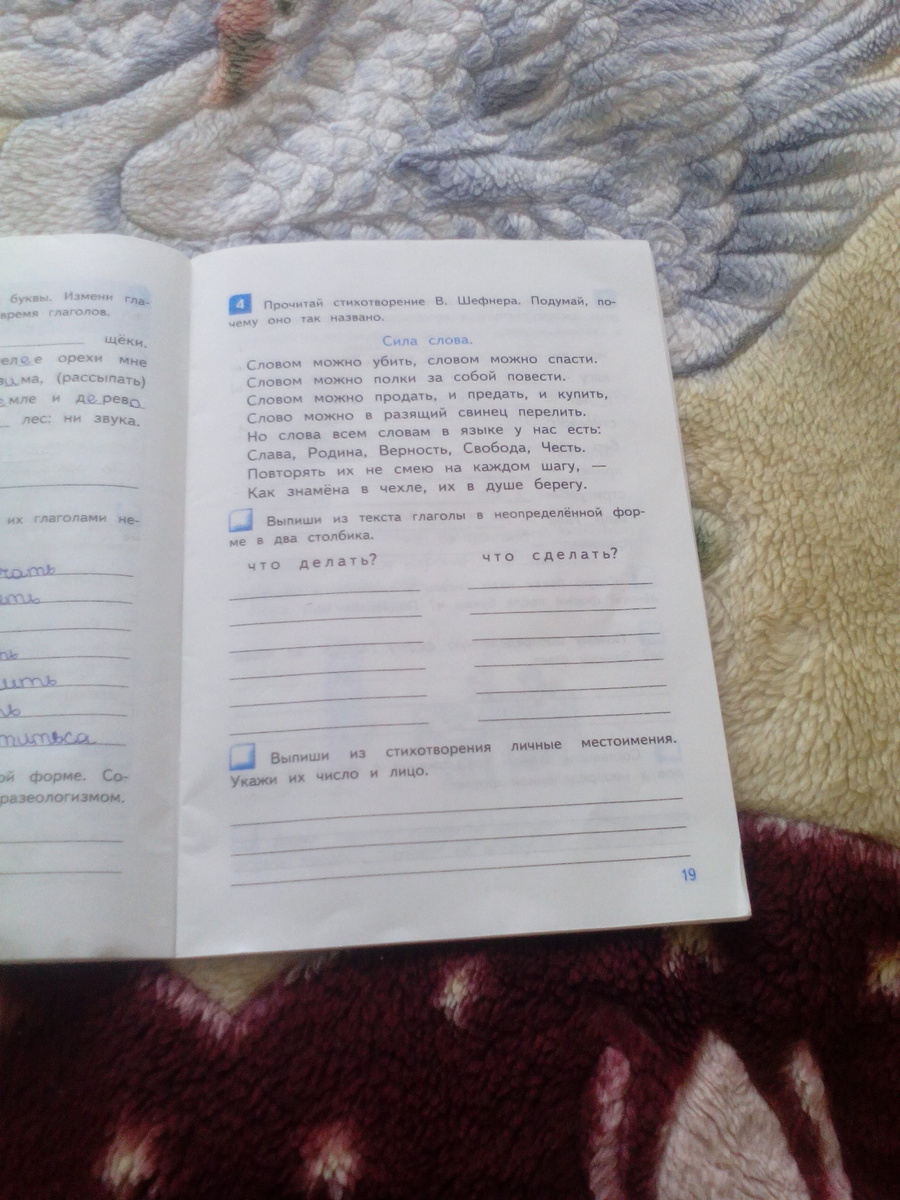 буквы. Измени гла-
время глаголов.
щёки.
орехи мне
(рассыпать)
и дерево
лес: ни звука.
их глаголами не-
ой форме. Со-
разеологизмом.
4 Прочитай стихотворение В. Шефнера. Подумай, по-
чему оно так названо.
Сила слова.
Словом можно убить, словом можно спасти.
Словом можно полки за собой повести.
Словом можно продать, и предать, и купить,
Слово можно в разящий свинец перелить.
Но слова всем словам в языке у нас есть:
Слава, Родина, Верность, Свобода, Честь.
Повторять их не смею на каждом шагу, —
Как знамёна в чехле, их в душе берегу.
Выпиши из текста глаголы в неопределённой фор-
ме в два столбика.
что делать? что сделать?
Выпиши из стихотворения личные местоимения.
Укажи их число и лицо.
19